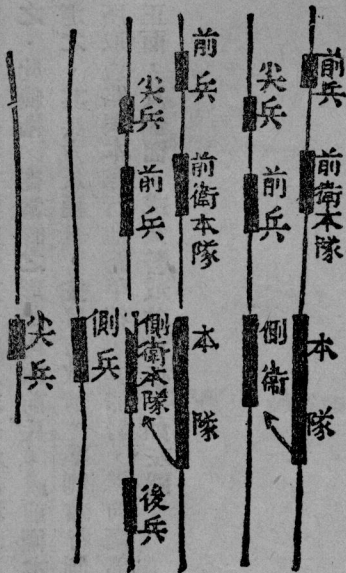 前兵
前衛本隊
本隊
尖兵
前兵
側衛
前兵
前衛本隊
本隊
尖兵
前兵
側衛本隊
後兵
側兵
尖兵